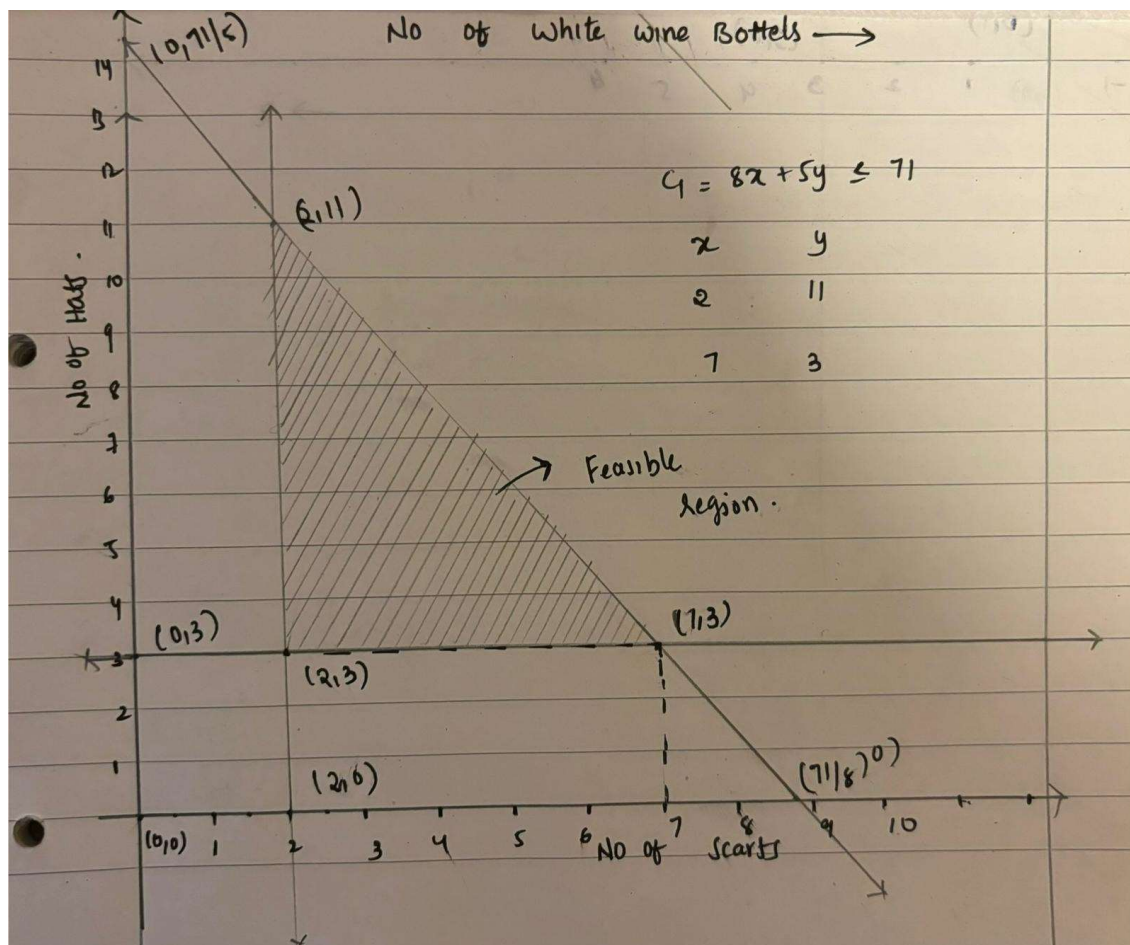 No of White wine Bottels →
(0,71/5)
14
13
12
11
10
9
8
7
6
5
4
3
2
1
No of Hats.
(2,11)
C1 = 8x + 5y ≤ 71
x y
2 11
7 3
Feasible
region.
(0,3)
(2,3)
(7,3)
(2,0)
(71/8,0)
(0,0) 1 2 3 4 5 6 7 8 9 10
No of Scarfs